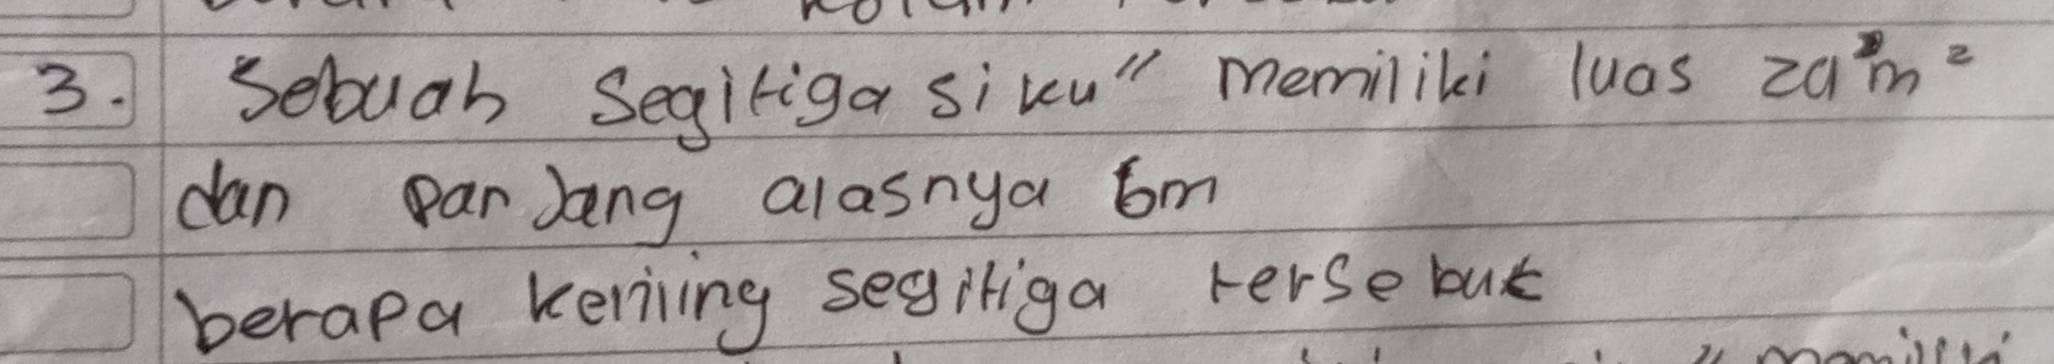 3. Sebuah segitiga siku" memiliki luas 24 m²
dan panjang alasnya 6m
berapa keriling segitiga tersebut